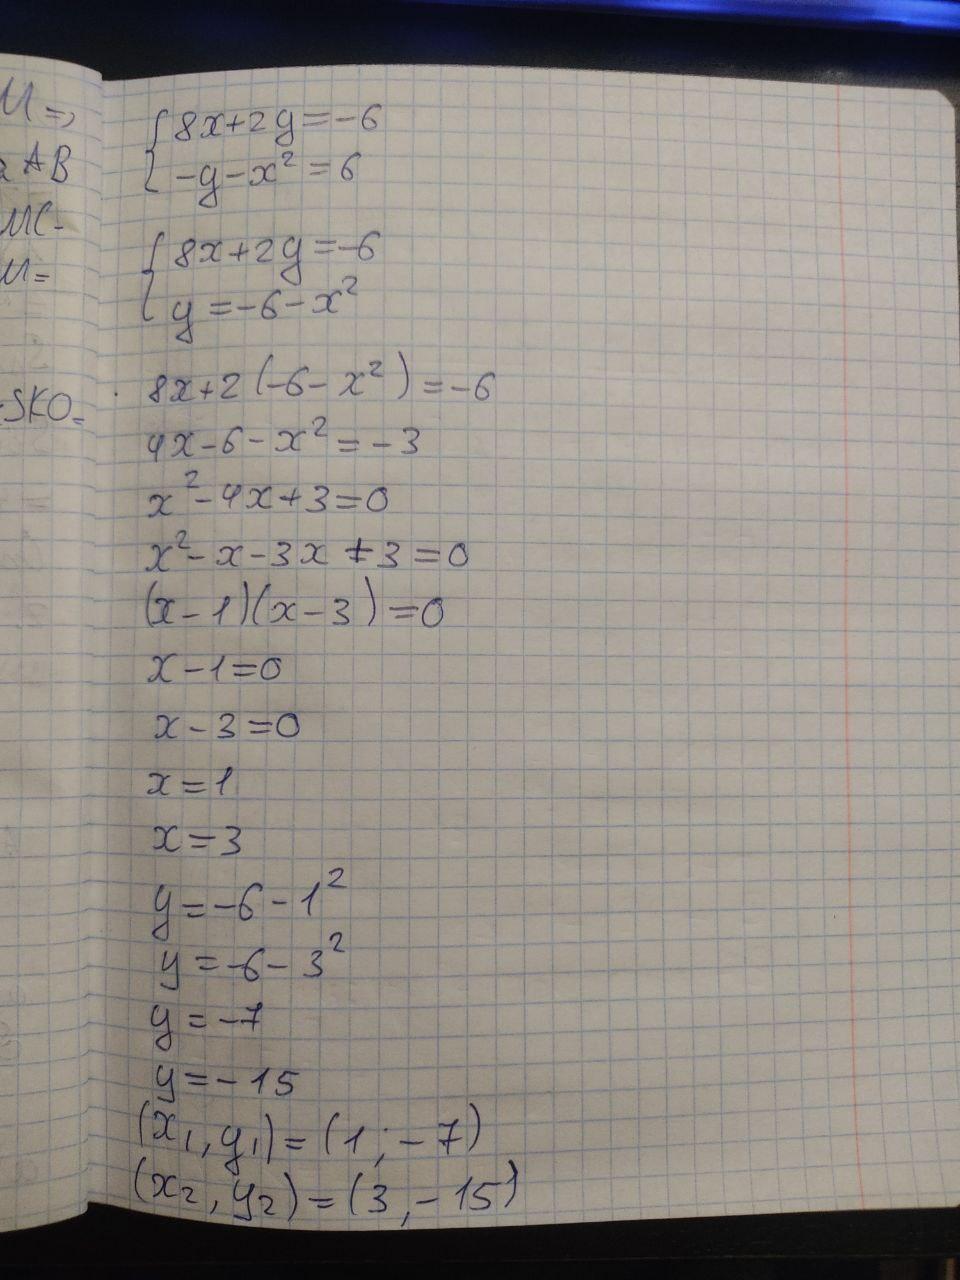 M=,
AB
MC-
M=
SKO=
{8x+2y=-6
{-y-x²=6
{8x+2y=-6
{y=-6-x²
8x+2(-6-x²)=-6
4x-6-x²=-3
x²-4x+3=0
x²-x-3x+3=0
(x-1)(x-3)=0
x-1=0
x-3=0
x=1
x=3
y=-6-1²
y=-6-3²
y=-7
y=-15
(x₁,y₁)=(1;-7)
(x₂,y₂)=(3,-15)